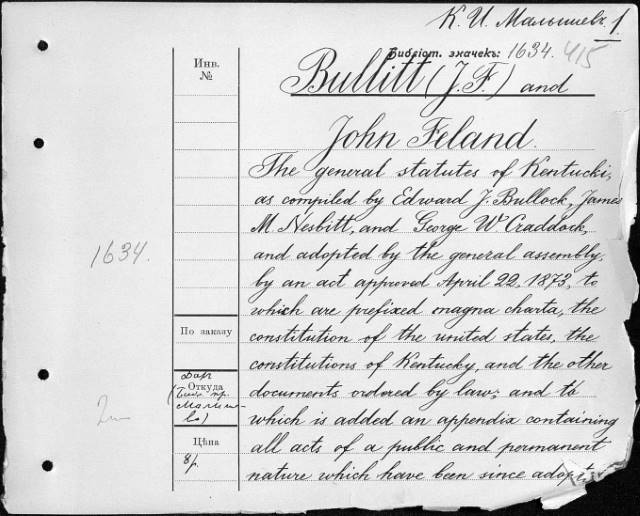 К. И. Малышевъ. 1
Библіот. значекъ: 1634. 415
Инв.
№
Bullitt (J. F.) and
John Feland.
The general statutes of Kentucki,
as compiled by Edward J. Bullock, James
M. Nesbitt, and George W. Craddock,
and adopted by the general assembly,
1634.
by an act approved April 22, 1873, to
which are prefixed magna charta, the
По заказу
constitution of the united states, the
constitutions of Kentucky, and the other
Даръ
Откуда
documents ordered by law; and to
which is added an appendix containing
Цѣна
8р.
all acts of a public and permanent
nature which have been since adopt